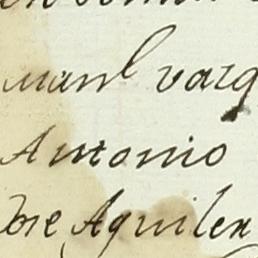 Manl varg
Antonio
Jose Aguilera